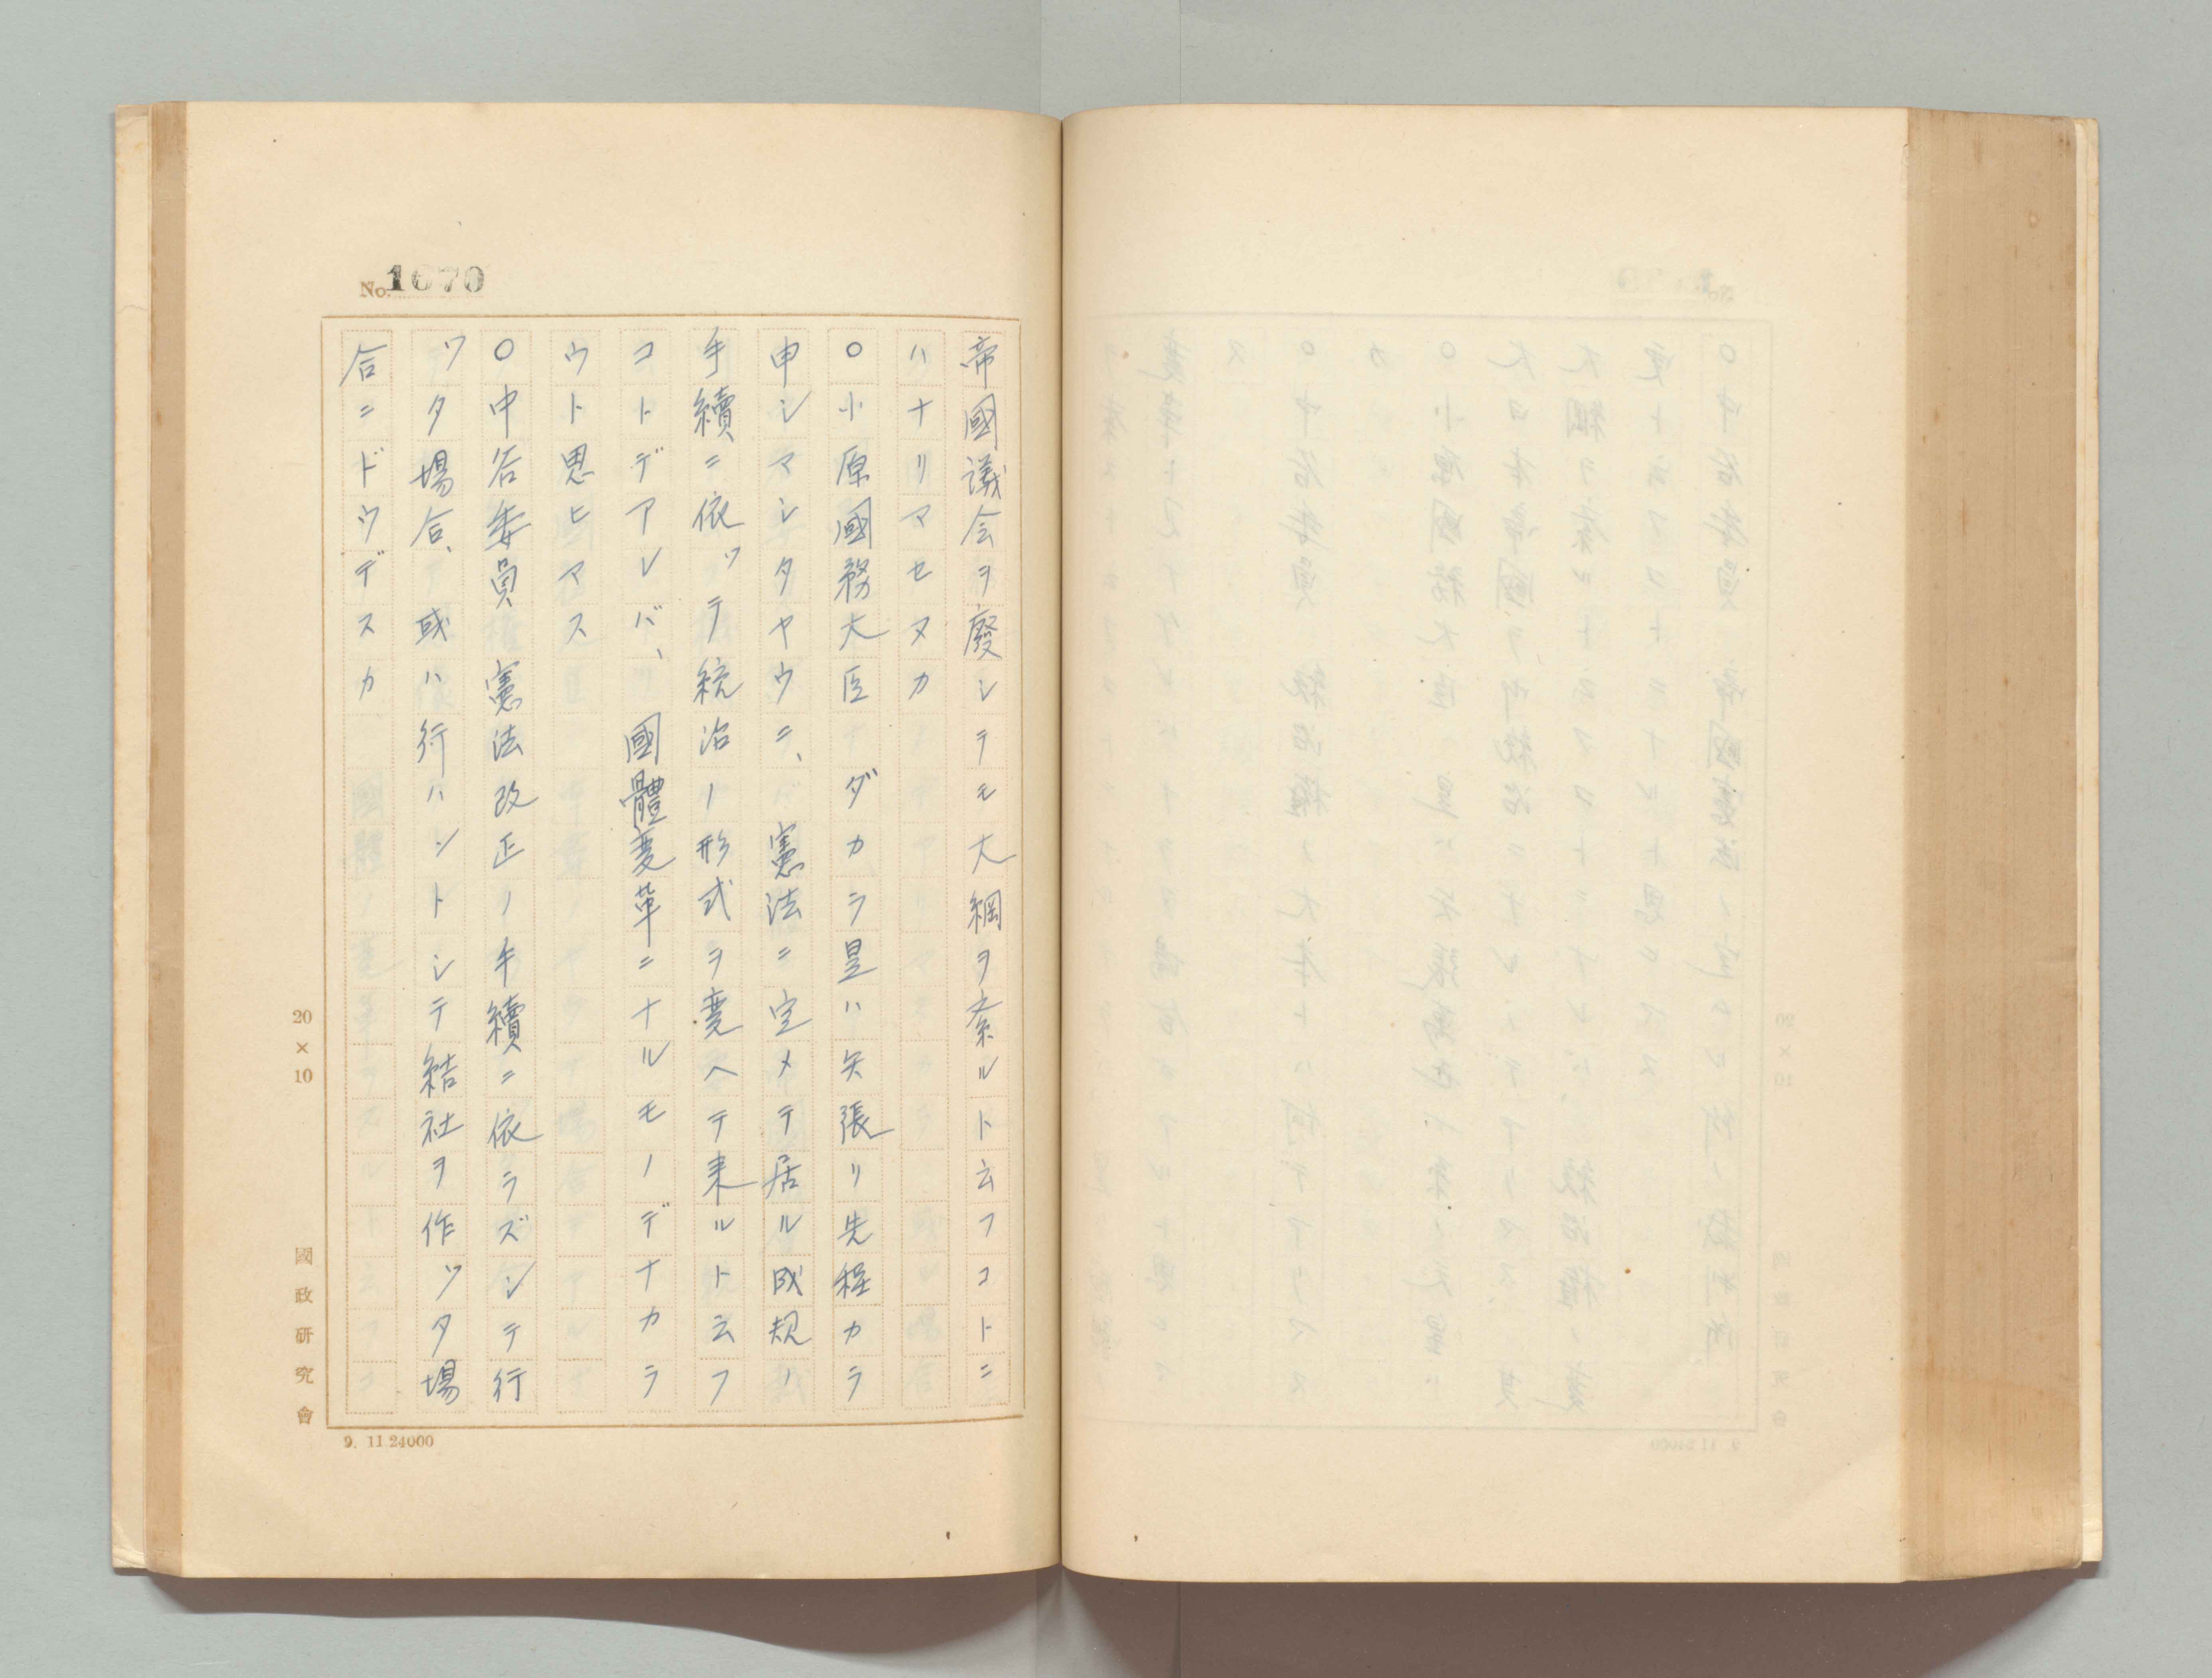 No. 1670
帝國議会ヲ廢シテモ大綱ヲ紊ルト云フコトニ
ハナリマセヌカ
○小原國務大臣 ダカラ是ハ矢張リ先程カラ
申シマシタヤウニ、憲法ニ定メテ居ル成規ノ
手續ニ依ツテ統治ノ形式ヲ変ヘテ来ルト云フ
コトデアレバ、國體変革ニナルモノデナカラ
ウト思ヒマス
○中谷委員 憲法改正ノ手續ニ依ラズシテ行
ツタ場合、或ハ行ハントシテ結社ヲ作ツタ場
合ニドウデスカ
20×10
國政研究會
9. 11.24000